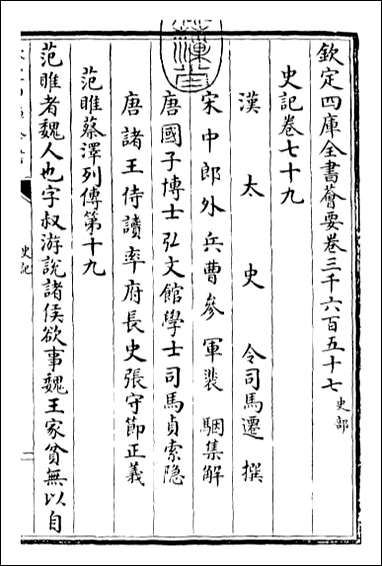 欽定四庫全書薈要卷三千六百五十七史部
史記卷七十九
漢太史令司馬遷撰
宋中郎外兵曹參軍裴駰集解
唐國子博士弘文館學士司馬貞索隐
唐諸王侍讀率府長史張守節正義
范雎蔡澤列傳第十九
范雎者魏人也字叔游說諸侯欲事魏王家貧無以自
史記